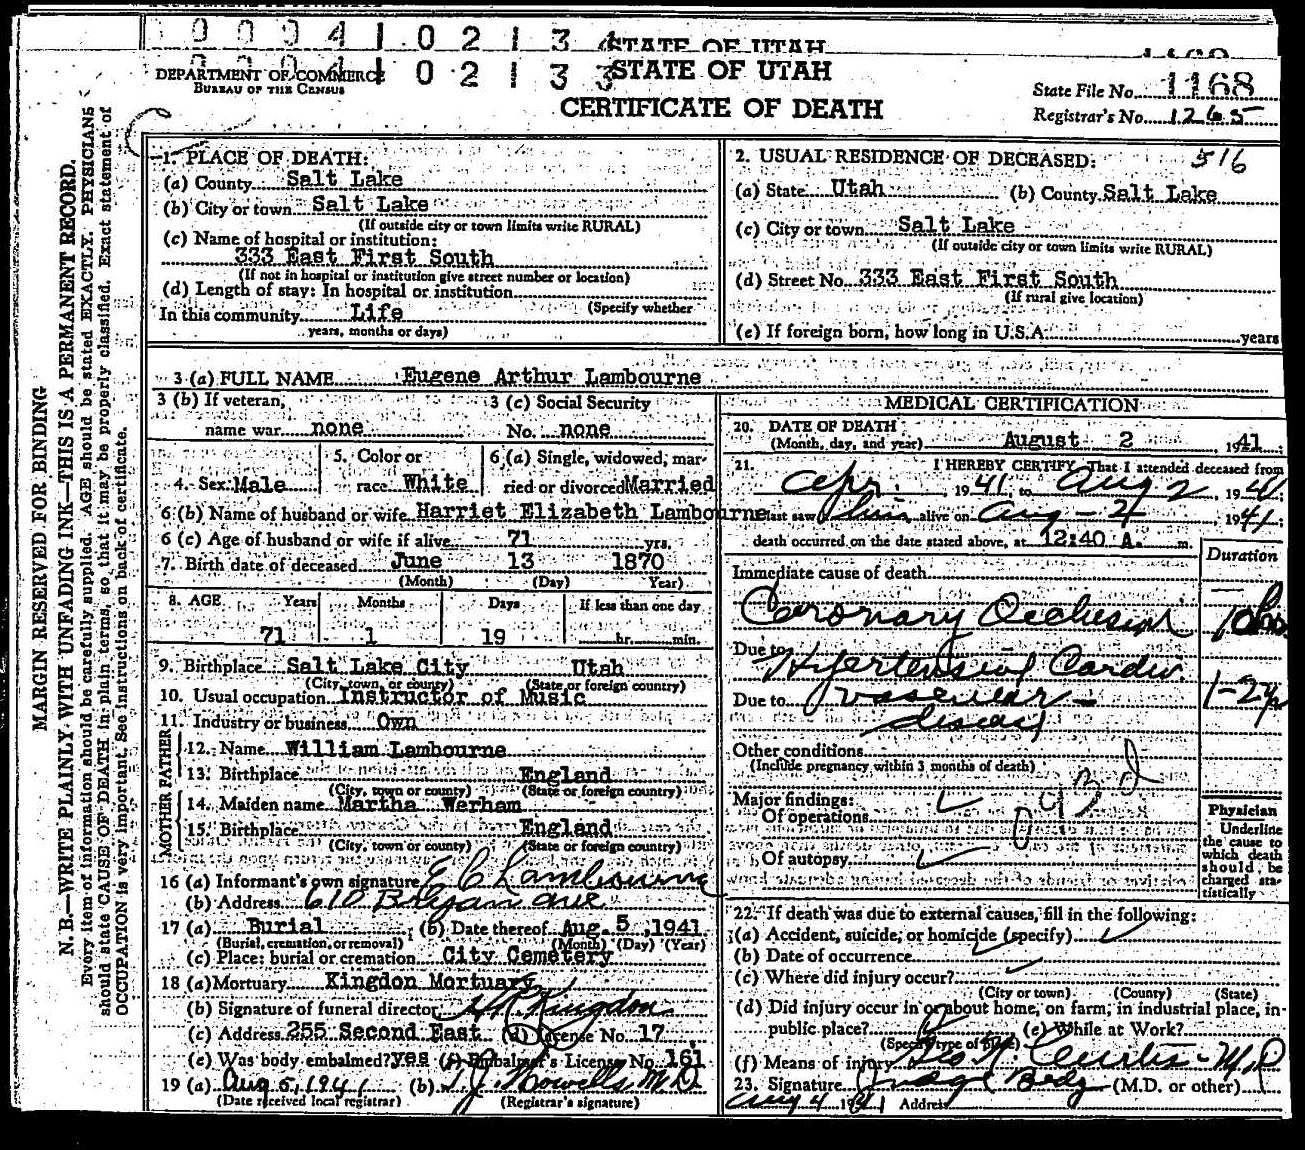 0 0 0 4 1 0 2 1 3 STATE OF UTAH
0 0 0 4 1 0 2 1 3 3 STATE OF UTAH
DEPARTMENT OF COMMERCE
BUREAU OF THE CENSUS
CERTIFICATE OF DEATH
State File No. 1168
Registrar's No. 1265
MARGIN RESERVED FOR BINDING
N. B.—WRITE PLAINLY WITH UNFADING INK—THIS IS A PERMANENT RECORD.
Every item of information should be carefully supplied. AGE should be stated EXACTLY. PHYSICIANS
should state CAUSE OF DEATH in plain terms, so that it may be properly classified. Exact statement of
OCCUPATION is very important. See instructions on back of certificate.
1. PLACE OF DEATH:
(a) County Salt Lake
(b) City or town Salt Lake
(If outside city or town limits write RURAL)
(c) Name of hospital or institution:
333 East First South
(If not in hospital or institution give street number or location)
(d) Length of stay: In hospital or institution
(Specify whether
In this community Life
years, months or days)
2. USUAL RESIDENCE OF DECEASED: 516
(a) State Utah (b) County Salt Lake
(c) City or town Salt Lake
(If outside city or town limits write RURAL)
(d) Street No. 333 East First South
(If rural give location)
(e) If foreign born, how long in U.S.A. years
3 (a) FULL NAME Eugene Arthur Lambourne
3 (b) If veteran, 3 (c) Social Security
name war none No. none
5. Color or 6 (a) Single, widowed, mar-
4. Sex Male race White ried or divorced Married
6 (b) Name of husband or wife Harriet Elizabeth Lambourne
6 (c) Age of husband or wife if alive 71 yrs.
7. Birth date of deceased June 13 1870
(Month) (Day) Year)
8. AGE Years Months Days If less than one day
71 1 19 hr. min.
9. Birthplace Salt Lake City Utah
(City, town, or county) (State or foreign country)
10. Usual occupation Instructor of Music
11. Industry or business Own
FATHER
12. Name William Lambourne
13. Birthplace England
(City, town or county) (State or foreign country)
MOTHER
14. Maiden name Martha Werham
15. Birthplace England
(City, town or county) (State or foreign country)
16 (a) Informant's own signature E C Lambourne
(b) Address 610 Bryan ave
17 (a) Burial (b) Date thereof Aug. 5, 1941
(Burial, cremation, or removal) (Month) (Day) (Year)
(c) Place: burial or cremation City Cemetery
18 (a) Mortuary Kingdon Mortuary
(b) Signature of funeral director Kingdon
(c) Address 255 Second East (d) License No. 17
(e) Was body embalmed? yes (f) Embalmer's License No. 161
19 (a) Aug 5, 1941 (b) T. J. Howells, M.D.
(Date received local registrar) (Registrar's signature)
MEDICAL CERTIFICATION
20. DATE OF DEATH
(Month, day, and year) August 2 , 1941
21. I HEREBY CERTIFY, That I attended deceased from
Apr. , 1941, to Aug 2 1941
last saw him alive on Aug - 2 1941
death occurred on the date stated above, at 12:40 A. m.
Duration
Immediate cause of death
Coronary Occlusion 10 hrs
Due to Hypertensive Cardio 1-2 yr
Due to vascular -
disease
Other conditions
(Include pregnancy within 3 months of death)
Major findings:
Of operations
Of autopsy
Physician
Underline
the cause to
which death
should be
charged sta-
tistically
22. If death was due to external causes, fill in the following:
(a) Accident, suicide, or homicide (specify)
(b) Date of occurrence
(c) Where did injury occur?
(City or town) (County) (State)
(d) Did injury occur in or about home, on farm, in industrial place, in
public place? (e) While at Work?
(Specify type of place)
(f) Means of injury Geo N. Curtis - M.D
23. Signature Judge Bldg (M.D. or other)
Aug 4 1941 Address